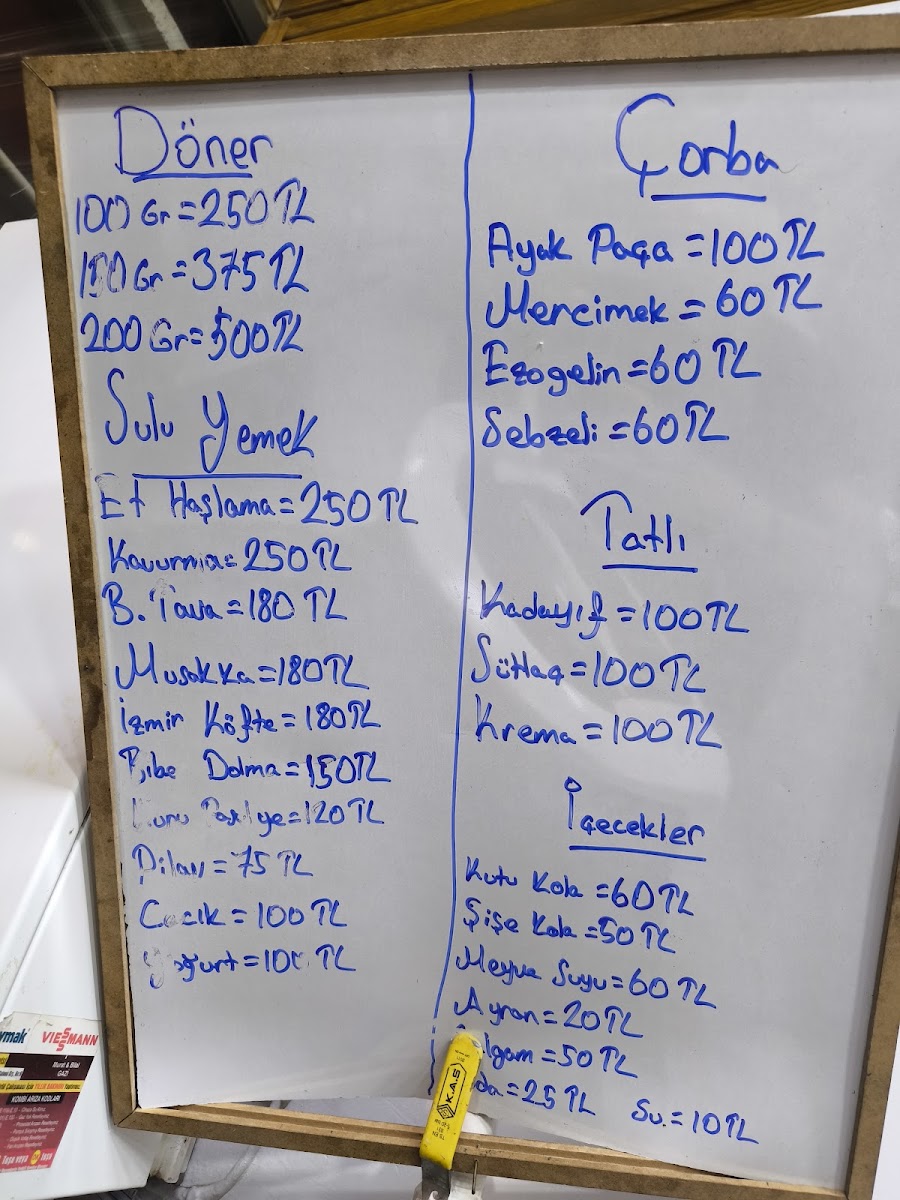 Döner
100 Gr = 250 TL
150 Gr = 375 TL
200 Gr = 500 TL
Sulu Yemek
Et Haşlama = 250 TL
Kavurma = 250 TL
B. Tava = 180 TL
Musakka = 180 TL
İzmir Köfte = 180 TL
Bibe Dolma = 150 TL
Kuru Fasulye = 120 TL
Pilav = 75 TL
Cacık = 100 TL
Yoğurt = 100 TL
Çorba
Ayak Paça = 100 TL
Mercimek = 60 TL
Ezogelin = 60 TL
Sebzeli = 60 TL
Tatlı
Kadayıf = 100 TL
Sütlaç = 100 TL
Krema = 100 TL
İçecekler
Kutu Kola = 60 TL
Şişe Kola = 50 TL
Meyva Suyu = 60 TL
Ayran = 20 TL
lgam = 50 TL
da = 25 TL Su. = 10 TL
K.A.S
VIESSMANN
Murat & Bilal
GAZİ
KOMBİ ARIZA KODLARI